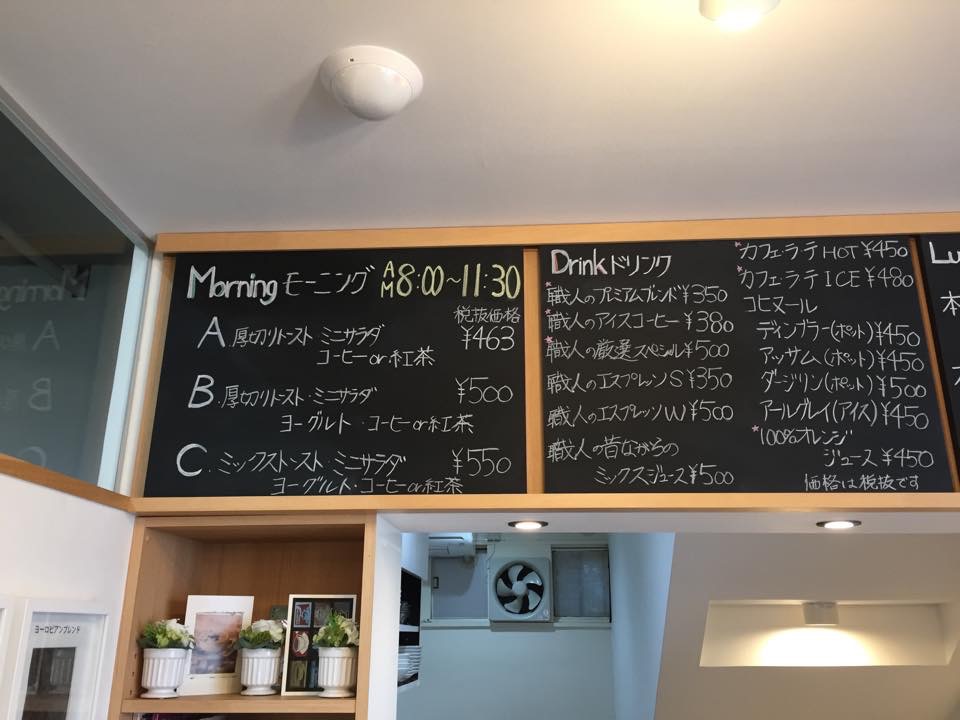 Morning モーニング AM 8:00~11:30
税抜価格
A 厚切りトースト ミニサラダ ¥463
コーヒーor紅茶
B. 厚切りトースト・ミニサラダ ¥500
ヨーグルト・コーヒーor紅茶
C. ミックストースト ミニサラダ ¥550
ヨーグルト・コーヒーor紅茶
Drinkドリンク
職人のプレミアムブレンド¥350
職人のアイスコーヒー¥380
職人の厳選スペシャル¥500
職人のエスプレッソS¥350
職人のエスプレッソW¥500
職人の昔ながらの
ミックスジュース¥500
カフェ・ラテHOT¥450
カフェ・ラテICE¥480
コヒヌール
ディンブラー(ポット)¥450
アッサム(ポット)¥450
ダージリン(ポット)¥500
アールグレイ(アイス)¥450
100%オレンジ
ジュース¥450
価格は税抜です
Lu
ヨーロピアンブレンド